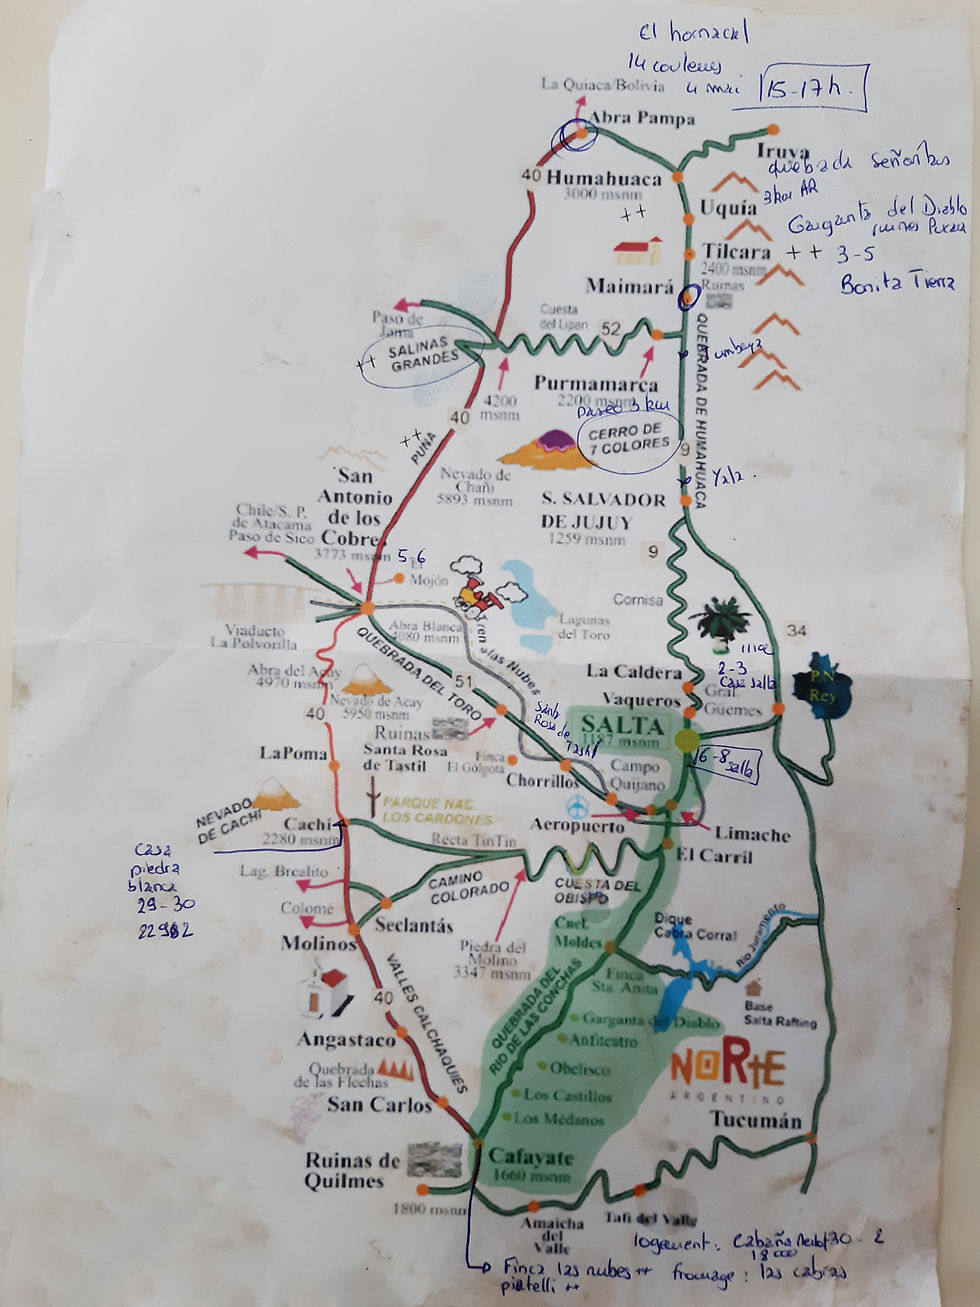 El hornacal
14 couleurs
4 mai 15-17h.
La Quiaca/Bolivia
Abra Pampa
Iruya
quebrada Señoritas
3km AR
40
Humahuaca
3000 msnm
++
Uquía
Garganta del Diablo
Tilcara ++ 3-5
2400 msnm
Bonita Tierra
Maimará
Ruinas
Paso de
Jama
Cuesta
del Lipan
52
++ SALINAS
GRANDES
Tumbaya
Purmamarca
2200 msnm
Paseo 3 km
4200
msnm
40
CERRO DE
7 COLORES
QUEBRADA DE HUMAHUACA
9
++
PUNA
San
Antonio
de los
Cobres
3773 msnm
5-6
Nevado de
Chañi
5893 msnm
Yala.
S. SALVADOR
DE JUJUY
1259 msnm
9
Chile/S. P.
de Atacama
Paso de Sico
El
Mojón
Cornisa
Viaducto
La Polvorilla
Abra Blanca
4080 msnm
Tren a las Nubes
Lagunas
del Toro
34
Abra del Acay
4970 msnm
QUEBRADA DEL TORO
51
La Caldera
2-3
Casa Salta
P.N
Rey
Nevado de Acay
5950 msnm
40
Vaqueros
Gral.
Güemes
Ruinas
Santa Rosa
de Tastil
Santa
Rosa de
Tastil
SALTA
1187 msnm
6-8 salta
LaPoma
Finca
El Gólgota
Chorrillos
Campo
Quijano
NEVADO
DE CACHI
PARQUE NAC.
LOS CARDONES
Cachi
2280 msnm
Aeropuerto
Limache
Recta TinTin
El Carril
Casa
piedra
blanca
29-30
22982
Lag. Brealito
CAMINO
COLORADO
CUESTA DEL
OBISPO
Colomé
Seclantás
Molinos
Piedra del
Molino
3347 msnm
Cnel.
Moldes
Dique
Cabra Corral
Río Juramento
VALLES CALCHAQUIES
40
QUEBRADA DEL
RIO DE LAS CONCHAS
Finca
Sta. Anita
Base
Salta Rafting
Angastaco
Garganta del Diablo
Anfiteatro
Obelisco
Los Castillos
Los Médanos
NORTE
ARGENTINO
Quebrada
de las Flechas
San Carlos
Tucumán
Ruinas de
Quilmes
1800 msnm
Cafayate
1660 msnm
Amaicha
del
Valle
Tafí del Valle
logement: Cabaña 30-2
18000
Finca las nubes ++ fromage: las cabras
piatelli ++